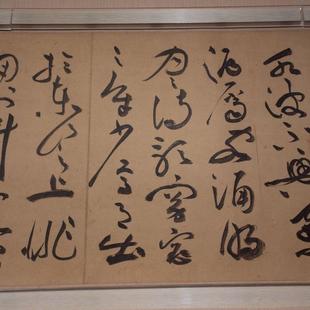 水波不興舉
酒屬客誦明
月之詩歌窈窕
之章少焉月出
於東山之上徘
徊於斗牛